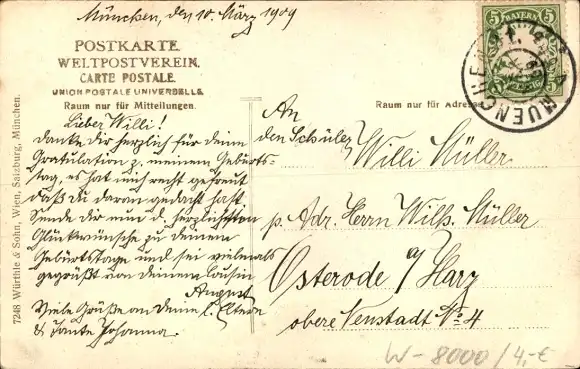 München, den 10. März 1909
POSTKARTE.
WELTPOSTVEREIN.
CARTE POSTALE.
UNION POSTALE UNIVERSELLE.
Raum nur für Mitteilungen.
Raum nur für Adresse
BAYERN
5 5
5 5
MUENCHEN
7248 Würthle & Sohn, Wien, Salzburg, München.
Lieber Willi!
Danke dir herzlich für deine
Gratulation z. meinem Geburts-
tag, es hat mich recht gefreut
daß du daran gedacht hast.
Sende dir nun d. herzlichsten
Glückwünsche zu deinem
Geburtstage und sei vielmals
gegrüßt von deinem Cousin
August
Viele Grüße an deine l. Eltern
& Tante Johanna.
An
den Schüler Willi Müller
p. Adr. Herrn Wilh. Müller
Osterode a/Harz
obere Neustadt No 4
W-8000/4,-€